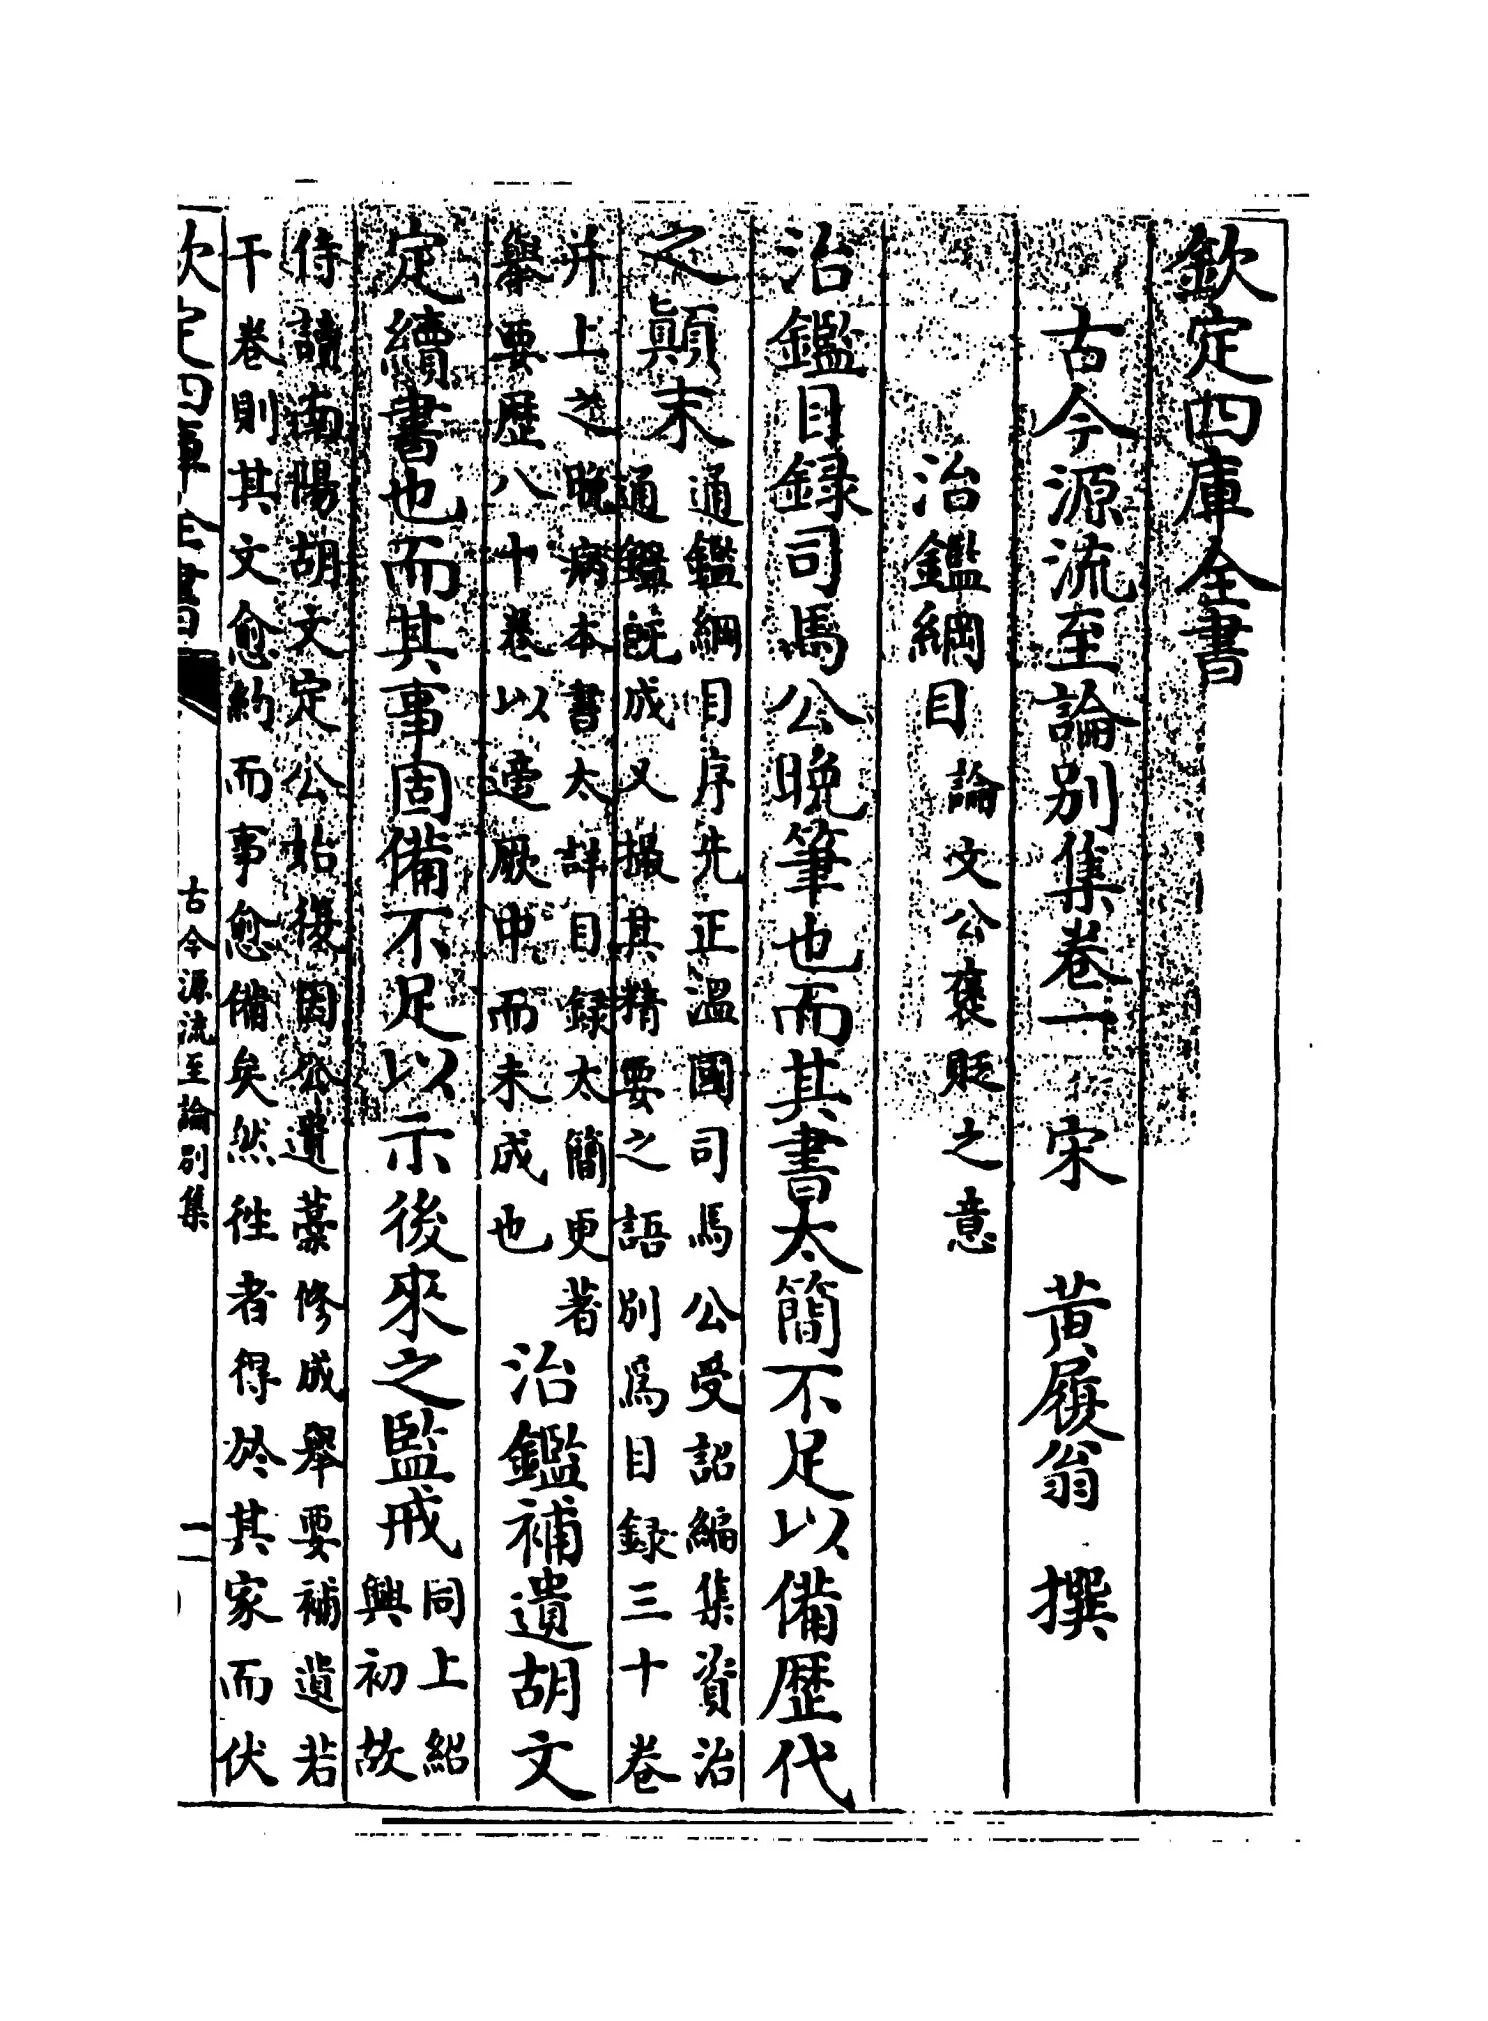 欽定四庫全書
古今源流至論别集卷一　宋　黄履翁　撰
治鑑綱目論文公褒貶之意
治鑑目録司馬公晚筆也而其書太簡不足以備歴代
之顛末通鑑綱目序先正溫國司馬公受詔編集資治
通鑑既成又撮其精要之語别為目録三十卷
并上之晚病本書太詳目録太簡更著
舉要歴八十卷以適厥中而未成也
治鑑補遺胡文
定續書也而其事固備不足以示後來之監戒同上紹
興初故
侍讀南陽胡文定公始復因公遺藁修成舉要補遺若
干卷則其文愈約而事愈備矣然徃者得於其家而伏
欽定四庫全書
古今源流至論别集